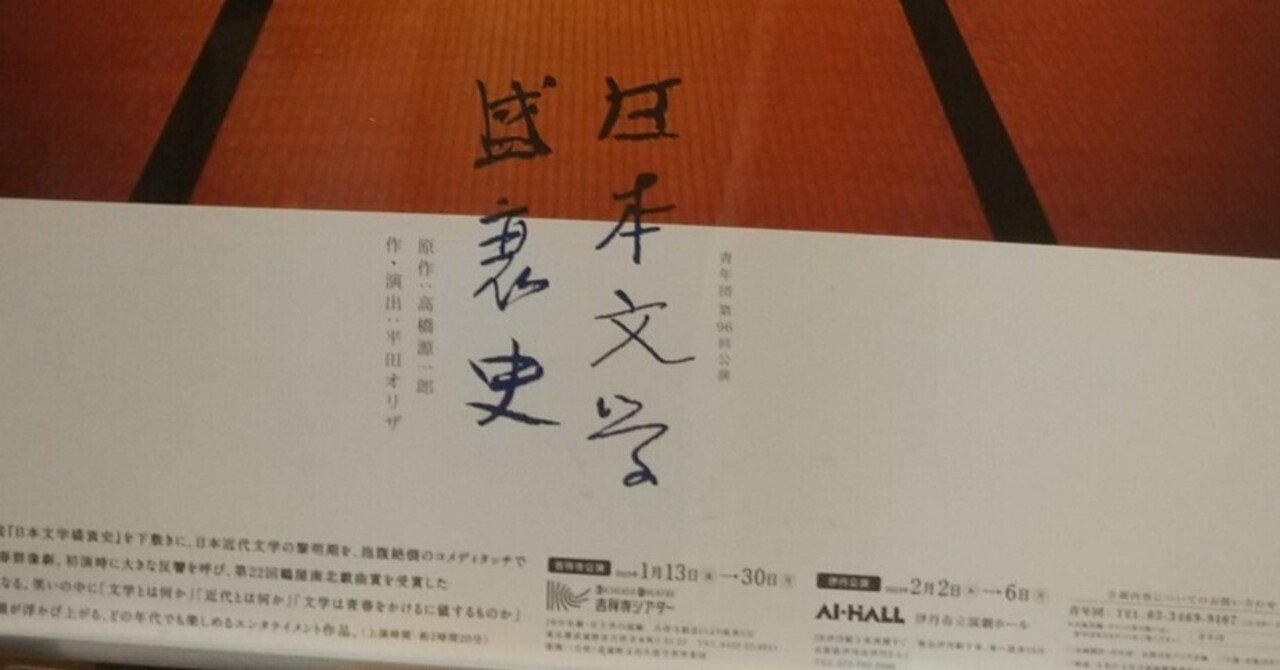 青年団 第96回公演
日本文学
盛衰史
原作：高橋源一郎
作・演出：平田オリザ
『日本文学盛衰史』を下敷きに、日本近代文学の黎明期を、抱腹絶倒のコメディタッチで
群像劇。初演時に大きな反響を呼び、第22回鶴屋南北戯曲賞を受賞した
なる。笑いの中に「文学とは何か」「近代とは何か」「文学は青春をかけるに値するものか」
が浮かび上がる、どの年代でも楽しめるエンタテイメント作品。（上演時間 約2時間20分）
吉祥寺公演 1月13日→30日
吉祥寺シアター
伊丹公演 2月2日→6日
AI・HALL 伊丹市立演劇ホール
公演内容についてのお問い合わせ
青年団：TEL.03-3469-9107